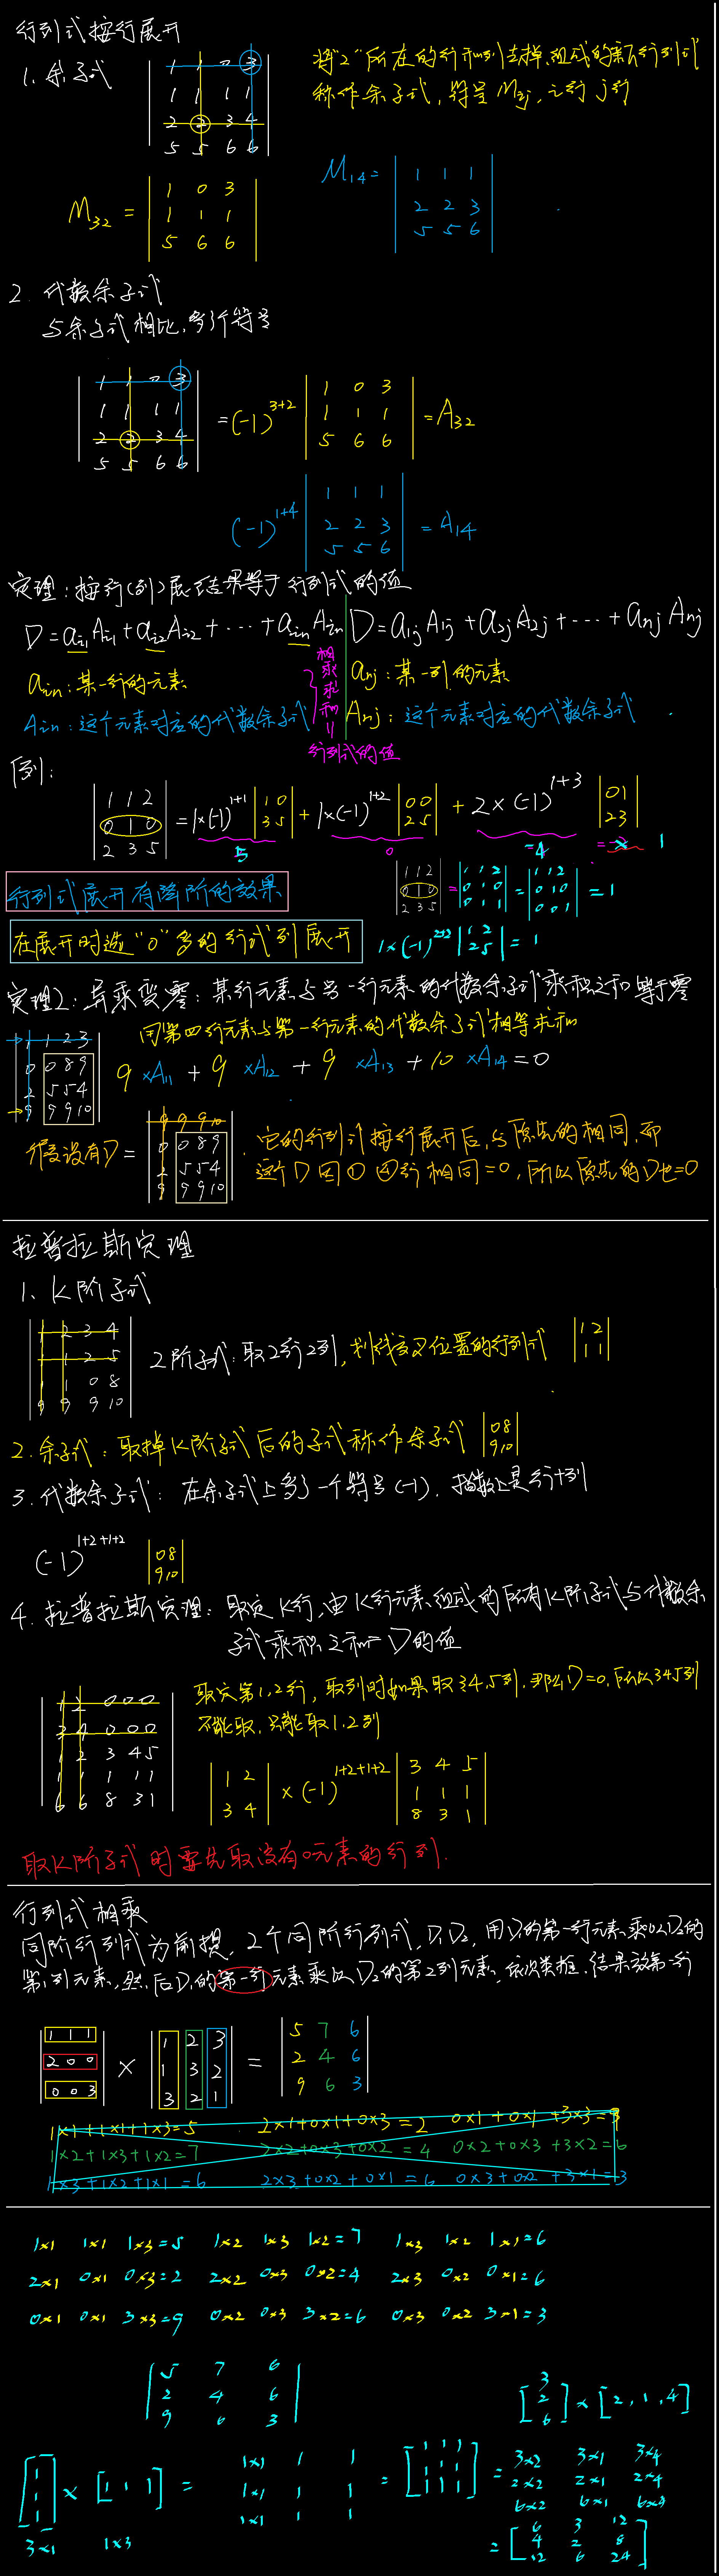 行列式按行展开
1. 余子式
1 1 0 3
1 1 1 1
2 2 3 4
5 5 6 6
将"2"所在的行和列去掉,组成的新行列式
称作余子式,符号Mij, i行j列
M32 =
1 0 3
1 1 1
5 6 6
M14 =
1 1 1
2 2 3
5 5 6
2. 代数余子式
与余子式相比,多了个符号
1 1 0 3
1 1 1 1
2 2 3 4
5 5 6 6
= (-1)^3+2
1 0 3
1 1 1
5 6 6
= A32
(-1)^1+4
1 1 1
2 2 3
5 5 6
= A14
定理:按行(列)展 结果等于行列式的值
D = ai1Ai1 + ai2Ai2 + ... + ainAin
D = a1jA1j + a2jA2j + ... + anjAnj
ain:某一行的元素
Ain:这个元素对应的代数余子式
anj:某一列的元素
Anj:这个元素对应的代数余子式
相乘求和=
行列式的值
例:
1 1 2
0 1 0
2 3 5
= 1×(-1)^1+1 |1 0 / 3 5| + 1×(-1)^1+2 |0 0 / 2 5| + 2×(-1)^1+3 |0 1 / 2 3|
5 0 -4 = 1
行列式展开有降阶的效果
|1 1 2 / 0 1 0 / 2 3 5| = |1 1 2 / 0 1 0 / 0 1 1| = |1 1 2 / 0 1 0 / 0 0 1| = 1
在展开时选"0"多的行或列展开
1×(-1)^2+2 |1 2 / 2 5| = 1
定理2:异乘变零:某行元素与另一行元素的代数余子式乘积之和等于零
用第四行元素与第一行元素的代数余子式相乘求和
1 1 2 3
0 0 8 9
2 5 5 4
9 9 9 10
9 ×A11 + 9 ×A12 + 9 ×A13 + 10 ×A14 = 0
假设有D =
9 9 9 10
0 0 8 9
2 5 5 4
9 9 9 10
它的行列式按行展开后,与原先的相同,而
这个D因①④行相同=0,所以原先的D也=0
拉普拉斯定理
1、K阶子式
1 2 3 4
1 1 2 5
1 1 0 8
9 9 9 10
2阶子式:取2行2列,划线交叉位置的行列式 |1 2 / 1 1|
2. 余子式:取掉K阶子式后的子式称作余子式 |0 8 / 9 10|
3. 代数余子式:在余子式上多了一个符号(-1),指数上是行+列
(-1)^1+2+1+2 |0 8 / 9 10|
4. 拉普拉斯定理:取定K行,由K行元素组成的所有K阶子式与代数余
子式乘积之和=D的值
1 2 0 0 0
3 4 0 0 0
1 2 3 4 5
1 1 1 1 1
6 6 8 3 1
取定第1,2行,取列时如果取3,4,5列,那么D=0,所以345列
不能取,只能取1,2列
|1 2 / 3 4| × (-1)^1+2+1+2 |3 4 5 / 1 1 1 / 8 3 1|
取K阶子式时要先取没有0元素的行列.
行列式相乘
同阶行列式为前提,2个同阶行列式,D1D2,用D1的第一行元素乘以D2的
第1列元素,然后D1的第一行元素乘以D2的第2列元素,依次类推,结果放第一行
|1 1 1 / 2 0 0 / 0 0 3| × |1 2 3 / 1 3 2 / 3 2 1| = |5 7 6 / 2 4 6 / 9 6 3|
1×1+1×1+1×3=5 2×1+0×1+0×3=2 0×1+0×1+3×3=9
1×2+1×3+1×2=7 2×2+0×3+0×2=4 0×2+0×3+3×2=6
1×3+1×2+1×1=6 2×3+0×2+0×1=6 0×3+0×2+3×1=3
1×1 1×1 1×3=5 1×2 1×3 1×2=7 1×3 1×2 1×1=6
2×1 0×1 0×3=2 2×2 0×3 0×2=4 2×3 0×2 0×1=6
0×1 0×1 3×3=9 0×2 0×3 3×2=6 0×3 0×2 3×1=3
5 7 6
2 4 6
9 6 3
[3 / 2 / 6] × [2, 1, 4]
[1 / 1 / 1] × [1 1 1] =
1×1 1 1
1×1 1 1
1×1 1 1
= [1 1 1 / 1 1 1 / 1 1 1]
3×1 1×3
= 3×2 3×1 3×4
2×2 2×1 2×4
6×2 6×1 6×4
= [6 3 12 / 4 2 8 / 12 6 24]